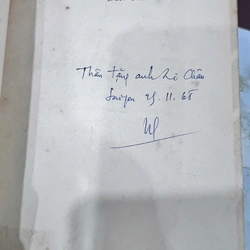 Thân tặng anh Lê Châu
Saigon 25.11.68